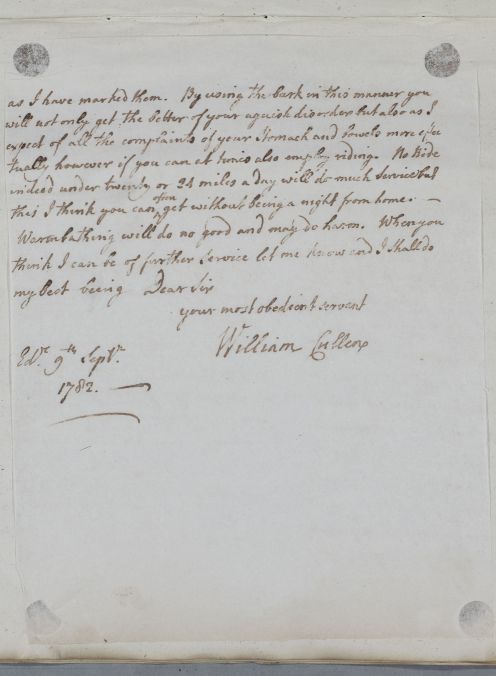 as I have marked them. By using the bark in this manner you
will not only get the better of your aguish disorder but also as I
expect of all the complaints of your Stomach and bowels more effec
tually, however if you can at times also employ riding. No Ride
indeed under twenty or 24 miles a day will do much service but
this I think you can often get without being a night from home. —
Warm bathing will do no good and may do harm. When you
think I can be of further service let me know and I shall do
my best being Dear Sir
your most obedient servant
William Cullen
Edr. 9th Septr.
1782. —